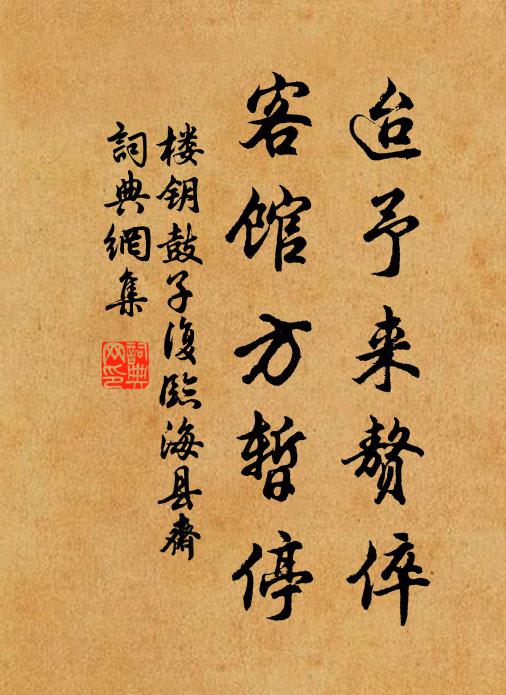 迨予来赘倅
客馆方暂停
楼钥鼓子复临海县斋
词典網集
詞典網印